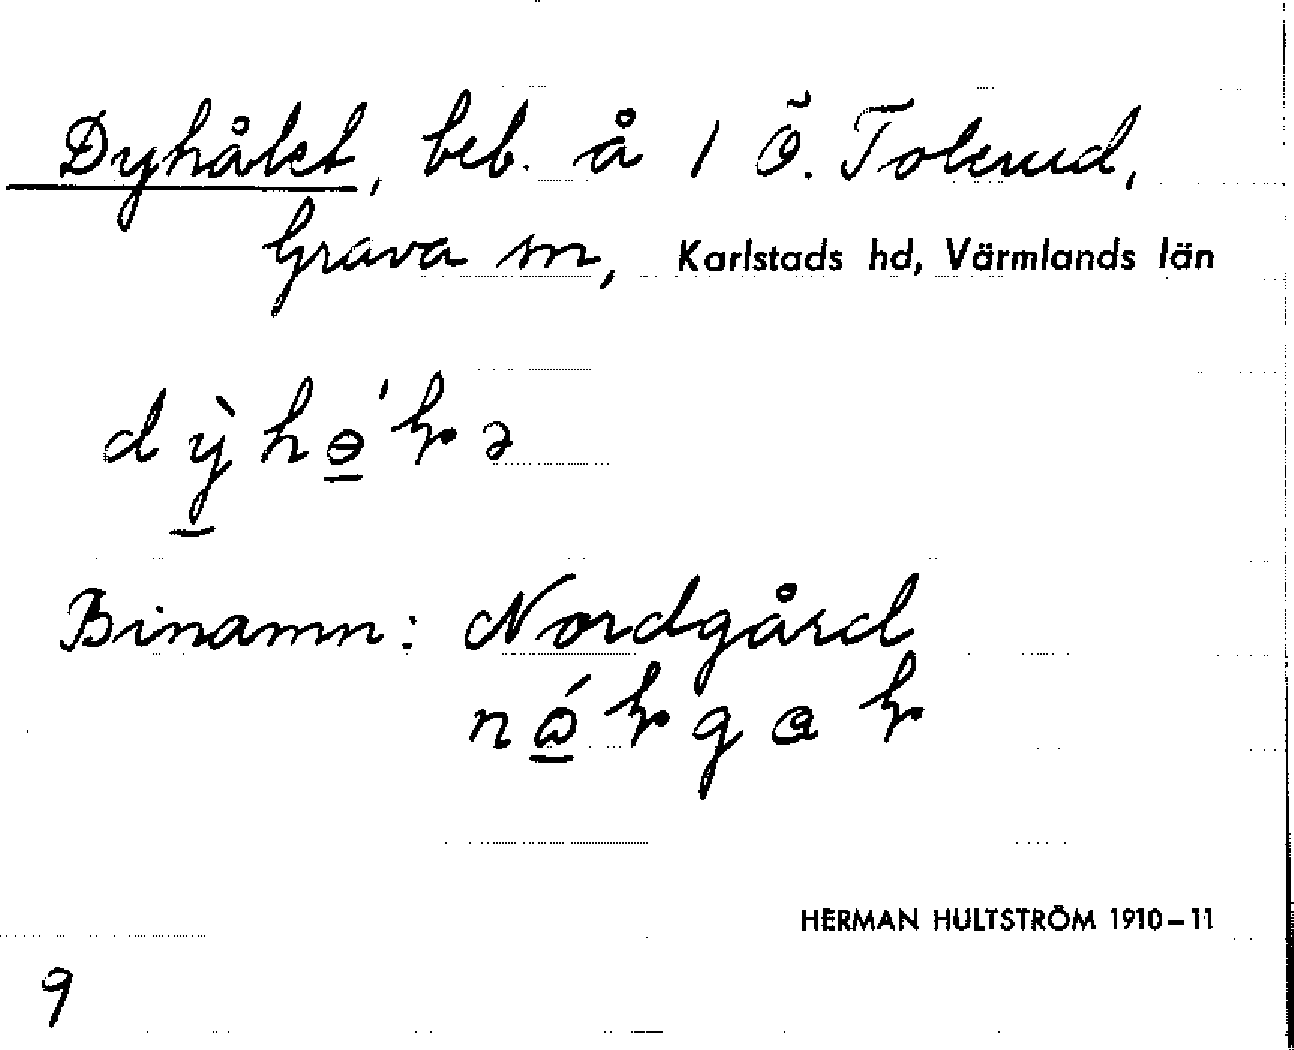 Dyhålet, beb. å 1 Ö. Tolerud,
Grava sn, Karlstads hd, Värmlands län
Binamn: Nordgård
HERMAN HULTSTRÖM 1910–11
9